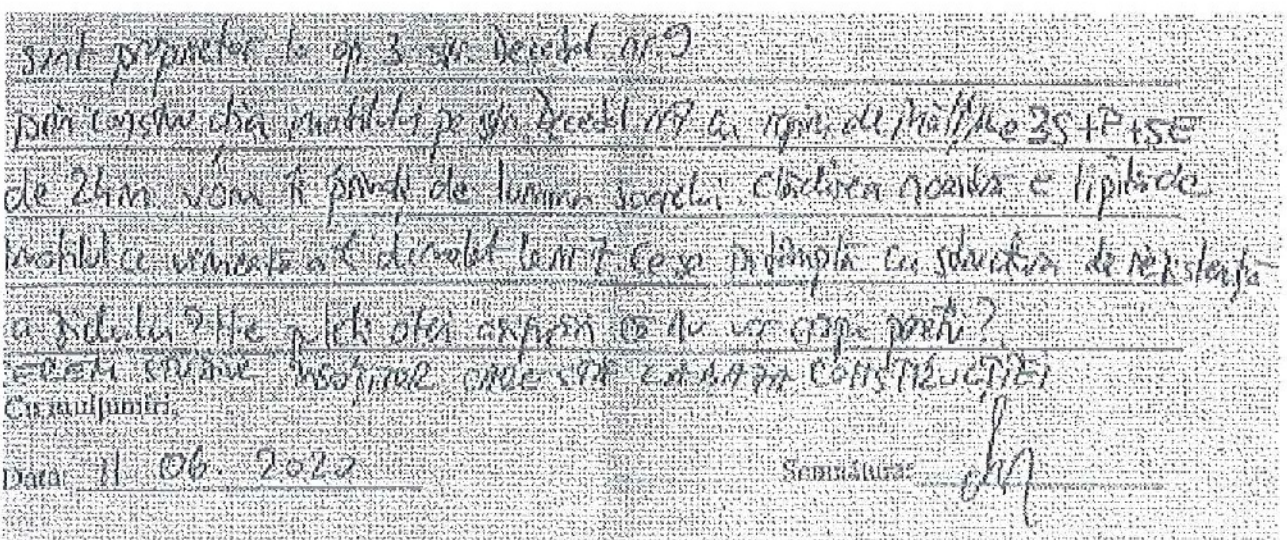 sint proprietar la ap. 3 str. Decebal nr 9
prin construcția imobilului pe str Decebal nr 7 cu regim de înălțime 3S+P+5E
de 24m vom fi privați de lumina soarelui. Clădirea noastră e lipită de
imobilul ce urmează a fi demolat la nr 7 ce se întîmplă cu structura de rezistență
a zidului? Ne puteți oferi ca nu vor crăpa pereții?
CONSTRUCȚIEI
Cu mulțumiri,
Data: 11 06. 2020
Semnătura: